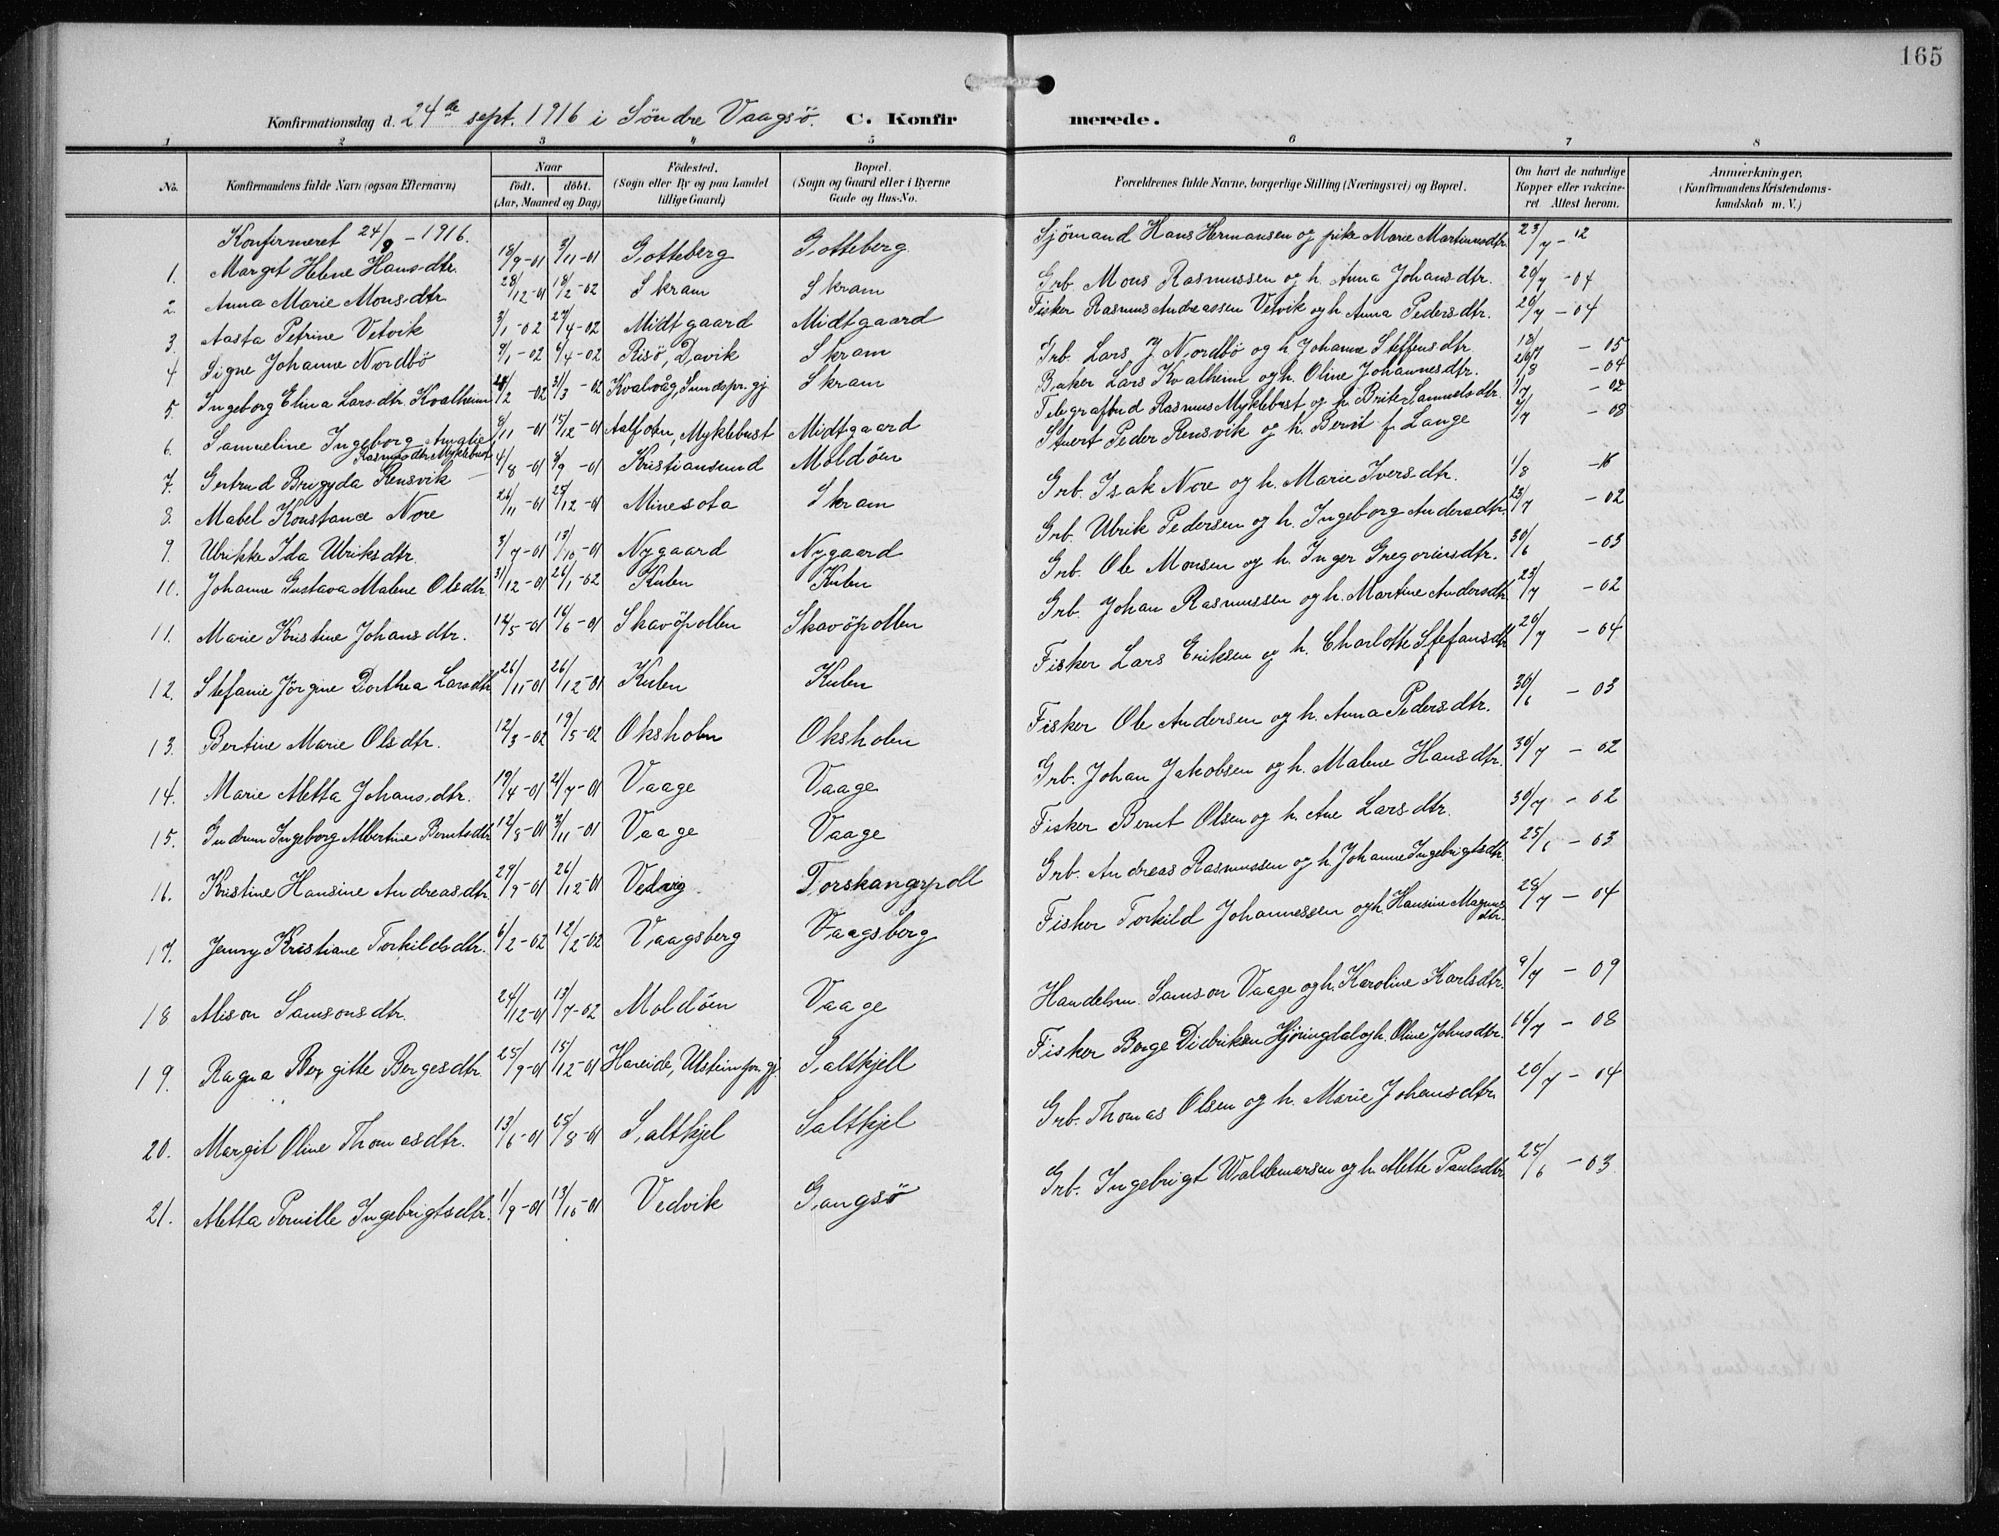 165
Konfirmationsdag d. 24de sept. 1916 i Söndre Vaagsö. C. Konfirmerede.
1 2 3 4 5 6 7 8
No. Konfirmandens fulde Navn (ogsaa Efternavn) Naar født. døbt. (Aar, Maaned og Dag) Födested. (Sogn eller By og paa Landet tillige Gaard) Bopæl. (Sogn og Gaard eller i Byerne Gade og Hus-No. Forældrenes fulde Navne, borgerlige Stilling (Næringsvei) og Bopæl. Om havt de naturlige Kopper eller vakcineret Attest herom. Anmærkninger. (Konfirmandens Kristendomskundskab m. V.)
Konfirmeret 24/9 - 1916.
1. Margit Helene Hansdtr. 18/9-01 3/11-01 Gotteberg Gotteberg Sjömand Hans Hermansen og pike Marie Martinusdtr 23/7-12
2. Anna Marie Monsdtr 28/12-01 18/2-02 Skram Skram Grb. Mons Rasmussen og h. Anna Johansdtr. 20/7-04
3. Aasta Petrine Vetvik 3/1-02 27/4-02 Midtgaard Midtgaard Fisker Rasmus Andreassen Vetvik og h. Anna Pedersdtr. 20/7-04
4 Signe Johanne Nordbö 9/1-02 6/4-02 Risö, Davik Skram Grb. Lars J Nordbö og h Johanne Steffensdtr 18/7-05
5. Ingeborg Elina Larsdtr Kvalheim /2-02 31/3-02 Kvalvåg, Sundspr.gj Skram Baker Lars Kvalheim og h. Oline Johannesdtr. 20/8-04
6. Samueline Ingeborg Amalie Rasmusdtr Myklebust 8/11-01 15/12-01 Aalfoten, Myklebust Midtgaard Telegrafbud Rasmus Myklebust og h Brite Samuelsdtr. 1/7-02
7. Gertrud Brigyda Rensvik 4/8-01 8/9-01 Kristiansund Moldöen Stuert Peder Rensvik og h. Berit f. Lange /7-08
8. Mabel Konstance Nore 26/11-01 25/12-01 Minesota Skram Grb. Isak Nore og h. Marie Iversdtr. 1/8-15
9. Ulrikke Ida Ulriksdtr. 3/7-01 13/10-01 Nygaard Nygaard Grb. Ulrik Pedersen og h. Ingeborg Andersdtr 23/7-02
10. Johanne Gustava Malene Olsdtr 31/12-01 26/1-02 Kulen Kulen Grb. Ole Monsen og h. Inger Gregoriusdtr. 30/6-03
11. Marie Kristine Johansdtr. 14/5-01 16/6-01 Skavöpollen Skavöpollen Grb. Johan Rasmussen og h. Martine Andersdtr 23/7-02
12. Stefanie Jörgine Dorthea Larsdtr 26/11-01 26/12-01 Kulen Kulen Fisker Lars Eriksen og h. Charlotte Stefansdtr 20/7-04
13. Bertine Marie Olsdtr. 12/3-02 19/5-02 Oksholen Oksholen Fisker Ole Andersen og h. Anna Pedersdtr. 30/6-03
14. Marie Metta Johansdtr. 19/4-01 21/7-01 Vaage Vaage Grb. Johan Jakobsen og h. Malene Hansdtr. 30/7-02
15. Gudrun Ingeborg Albertine Berntsdtr 12/8-01 3/11-01 Vaage Vaage Fisker Bernt Olsen og h. Ane Larsdtr. 30/7-02
16. Kristine Hansine Andreasdtr 29/9-01 26/12-01 Vedvig Torskangerpoll Grb. Andreas Rasmussen og h Johanne Ingebrigtsdtr. 25/6-03
17. Jenny Kristiane Torkildsdtr. 6/2-02 12/2-02 Vaagsberg Vaagsberg Fisker Torkild Johannessen og h. Hansine Magnusdtr. 28/7-04
18 Alison Samsonsdtr. 24/12-01 13/7-02 Moldöen Vaage Handelsm. Samson Vaage og h. Karoline Karlsdtr. 9/7-09
19. Ragna Bergitte Bergesdtr 25/9-01 15/12-01 Hareide, Ulstein pr.gj. Saltkjell Fisker Berge Didriksen Hjöringdal og h. Oline Johnsdtr. 16/7-08
20. Margit Oline Thomasdtr. 13/6-01 25/8-01 Saltkjel Saltkjel Grb. Thomas Olsen og h. Marie Johansdtr. 20/7-04
21. Metta Pernille Ingebrigtsdtr. 1/9-01 13/10-01 Vedvik Gangsö Grb. Ingebrigt Waldemarsen og h. Mette Paulsdtr 25/6-03